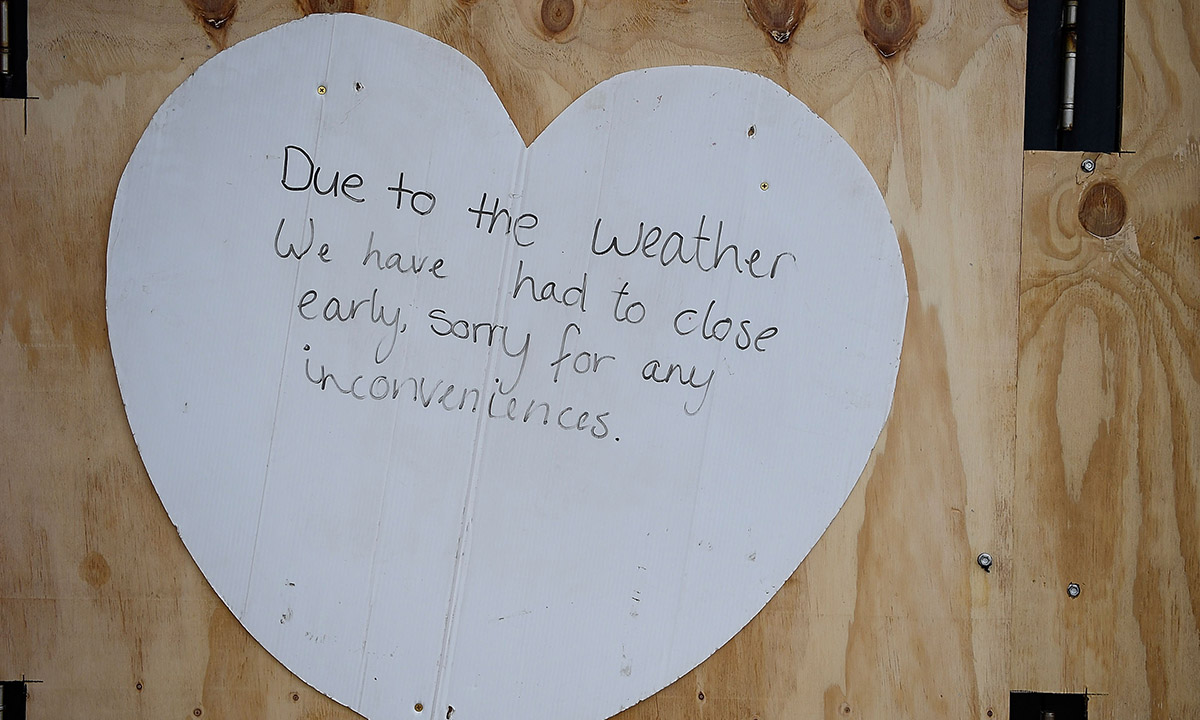 Due to the weather
We have had to close
early, sorry for any
inconveniences.